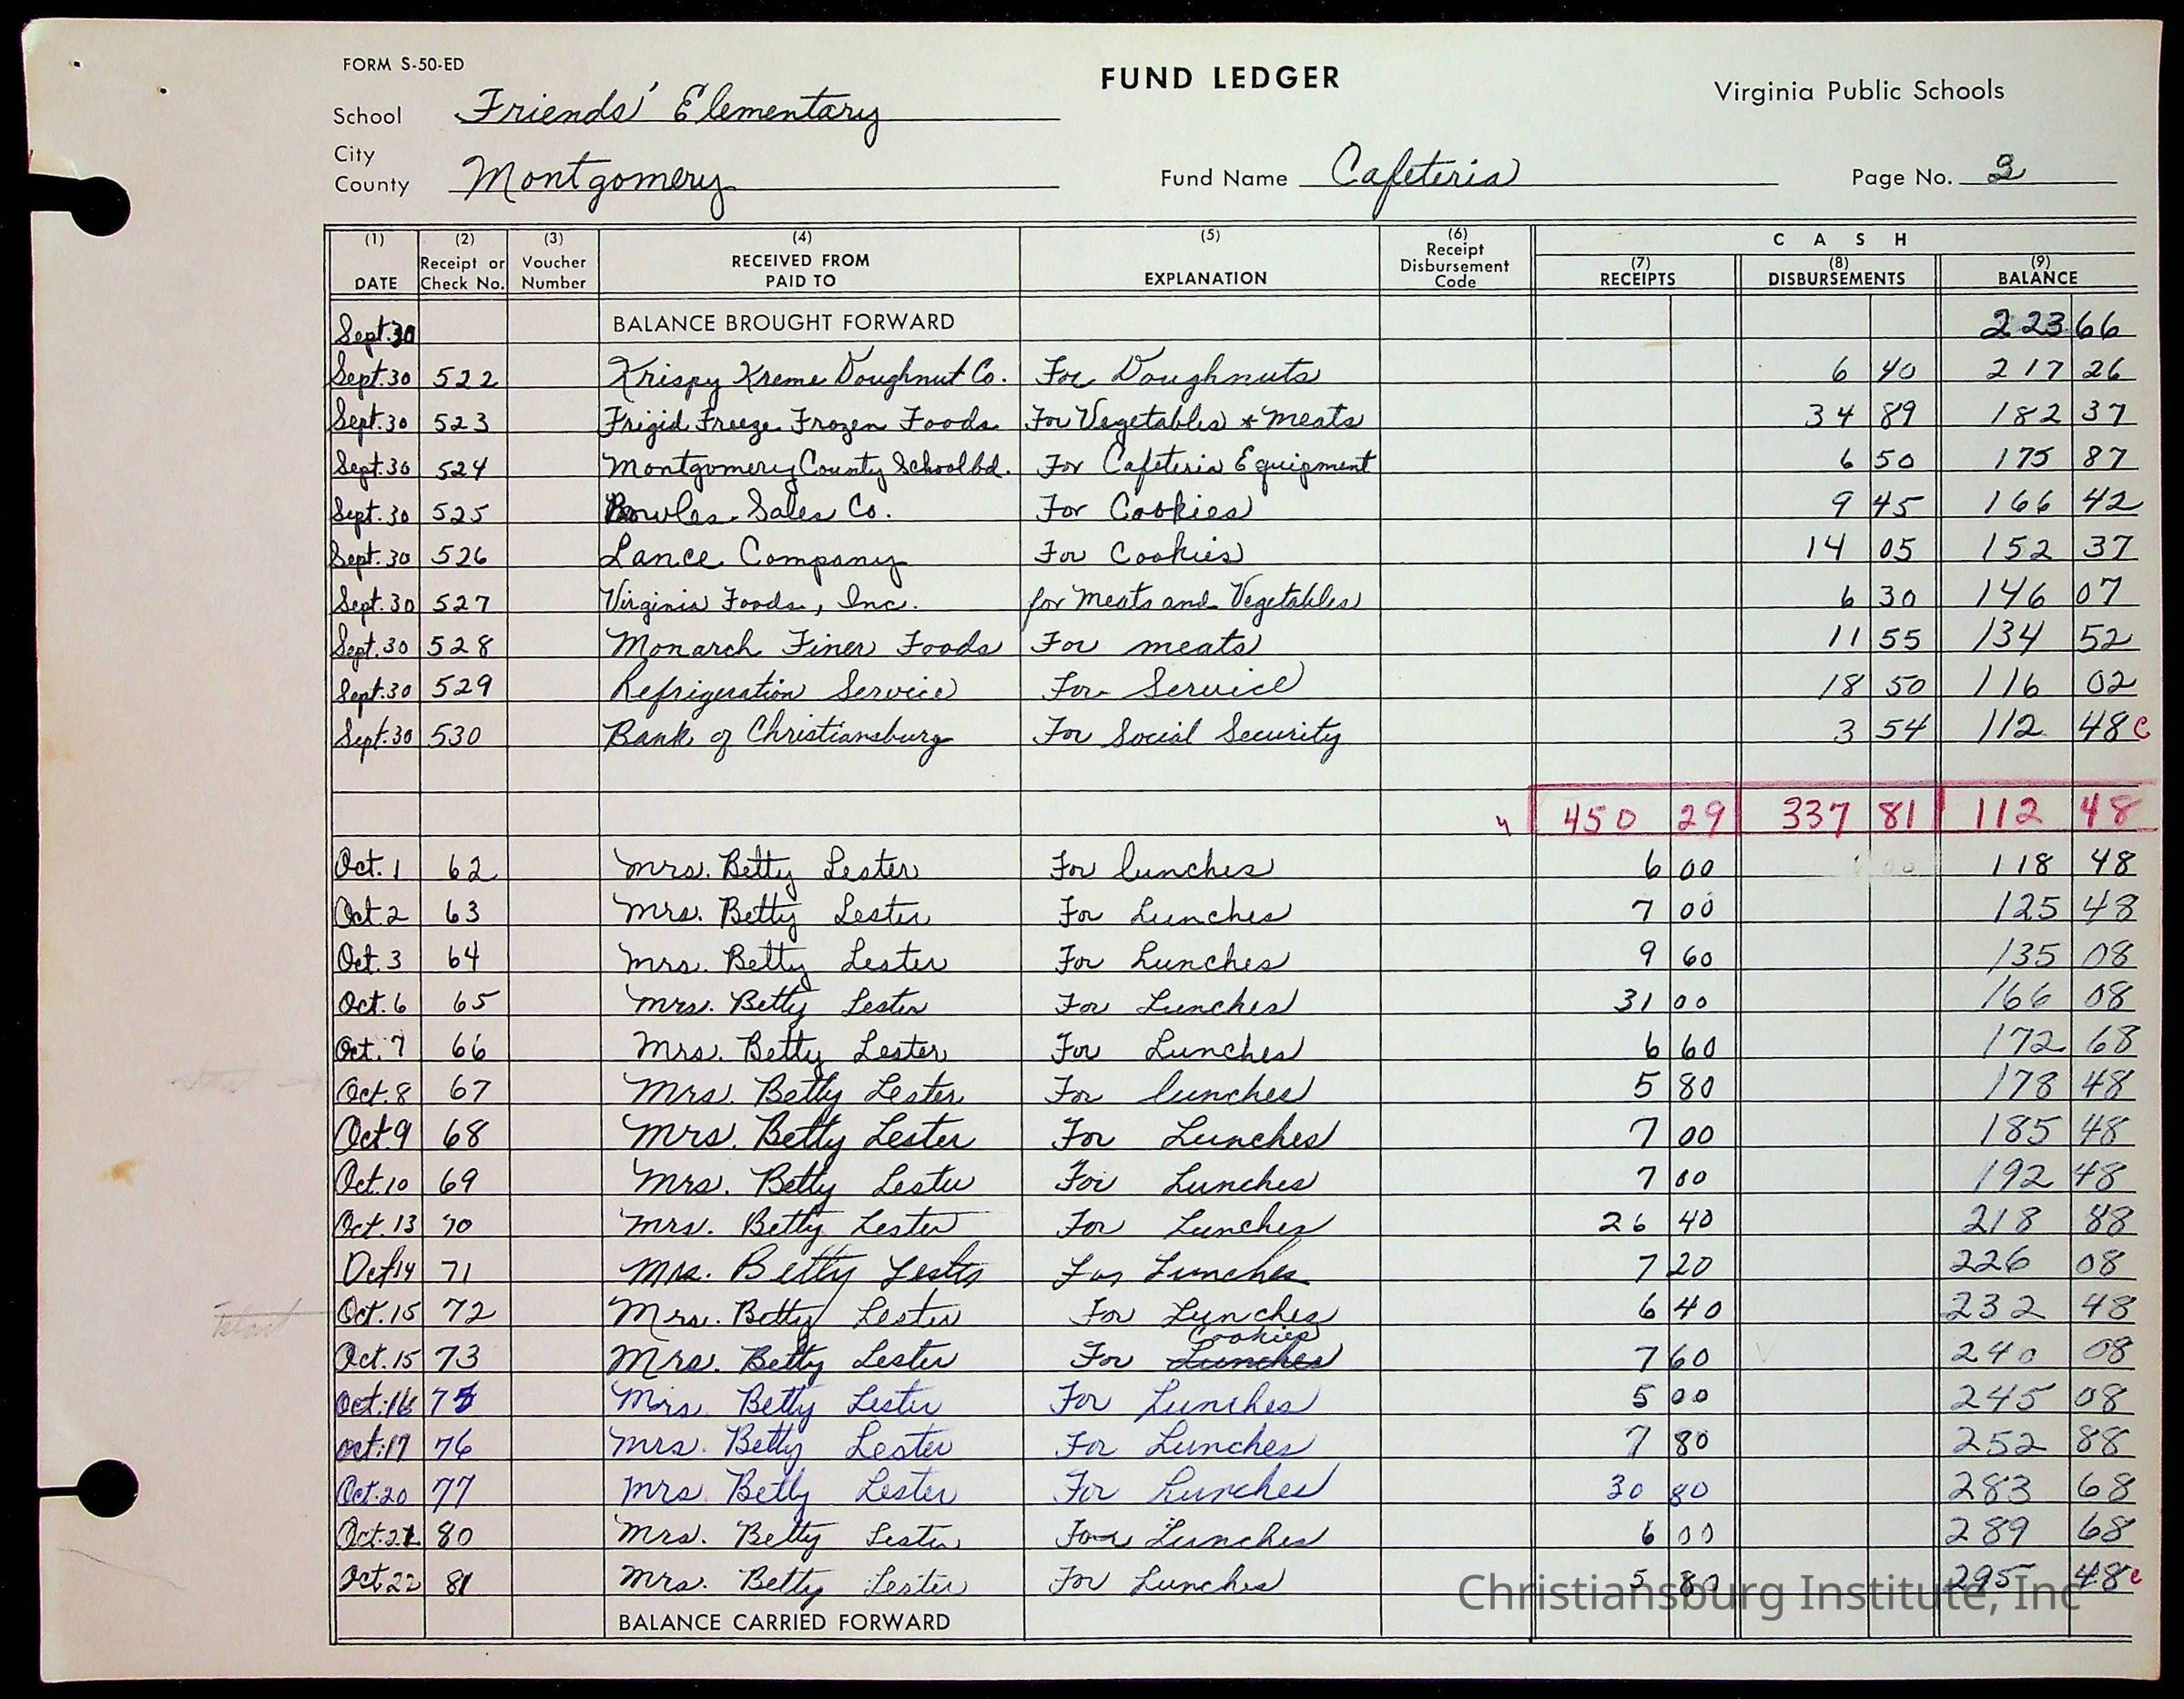 FORM S-50-ED
FUND LEDGER
Virginia Public Schools
School Friends' Elementary
City
County Montgomery
Fund Name Cafeteria
Page No. 2
(1) DATE (2) Receipt or Check No. (3) Voucher Number (4) RECEIVED FROM PAID TO (5) EXPLANATION (6) Receipt Disbursement Code CASH (7) RECEIPTS (8) DISBURSEMENTS (9) BALANCE
Sept. 30 BALANCE BROUGHT FORWARD 223 66
Sept. 30 522 Krispy Kreme Doughnut Co. For Doughnuts 6 40 217 26
Sept. 30 523 Frigid Freeze Frozen Foods For Vegetables + Meats 34 89 182 37
Sept. 30 524 Montgomery County School bd. For Cafeteria Equipment 6 50 175 87
Sept. 30 525 Bowles Sales Co. For Cookies 9 45 166 42
Sept. 30 526 Lance Company For Cookies 14 05 152 37
Sept. 30 527 Virginia Foods, Inc. for Meats and Vegetables 6 30 146 07
Sept. 30 528 Monarch Finer Foods For meats 11 55 134 52
Sept. 30 529 Refrigeration Service For Service 18 50 116 02
Sept. 30 530 Bank of Christiansburg For Social Security 3 54 112 48 c
450 29 337 81 112 48
Oct. 1 62 Mrs. Betty Lester For lunches 6 00 118 48
Oct. 2 63 Mrs. Betty Lester For Lunches 7 00 125 48
Oct. 3 64 Mrs. Betty Lester For Lunches 9 60 135 08
Oct. 6 65 Mrs. Betty Lester For Lunches 31 00 166 08
Oct. 7 66 Mrs. Betty Lester For Lunches 6 60 172 68
Oct. 8 67 Mrs. Betty Lester For lunches 5 80 178 48
Oct 9 68 Mrs. Betty Lester For Lunches 7 00 185 48
Oct. 10 69 Mrs. Betty Lester For Lunches 7 00 192 48
Oct. 13 70 Mrs. Betty Lester For Lunches 26 40 218 88
Oct 14 71 Mrs. Betty Lester For Lunches 7 20 226 08
Oct. 15 72 Mrs. Betty Lester For Lunches 6 40 232 48
Oct. 15 73 Mrs. Betty Lester For Lunches Cookies 7 60 240 08
Oct. 16 75 Mrs. Betty Lester For Lunches 5 00 245 08
Oct. 17 76 Mrs. Betty Lester For Lunches 7 80 252 88
Oct. 20 77 Mrs. Betty Lester For Lunches 30 80 283 68
Oct. 21 80 Mrs. Betty Lester For Lunches 6 00 289 68
Oct 22 81 Mrs. Betty Lester For Lunches 5 80 295 48 c
Christiansburg Institute, Inc
BALANCE CARRIED FORWARD